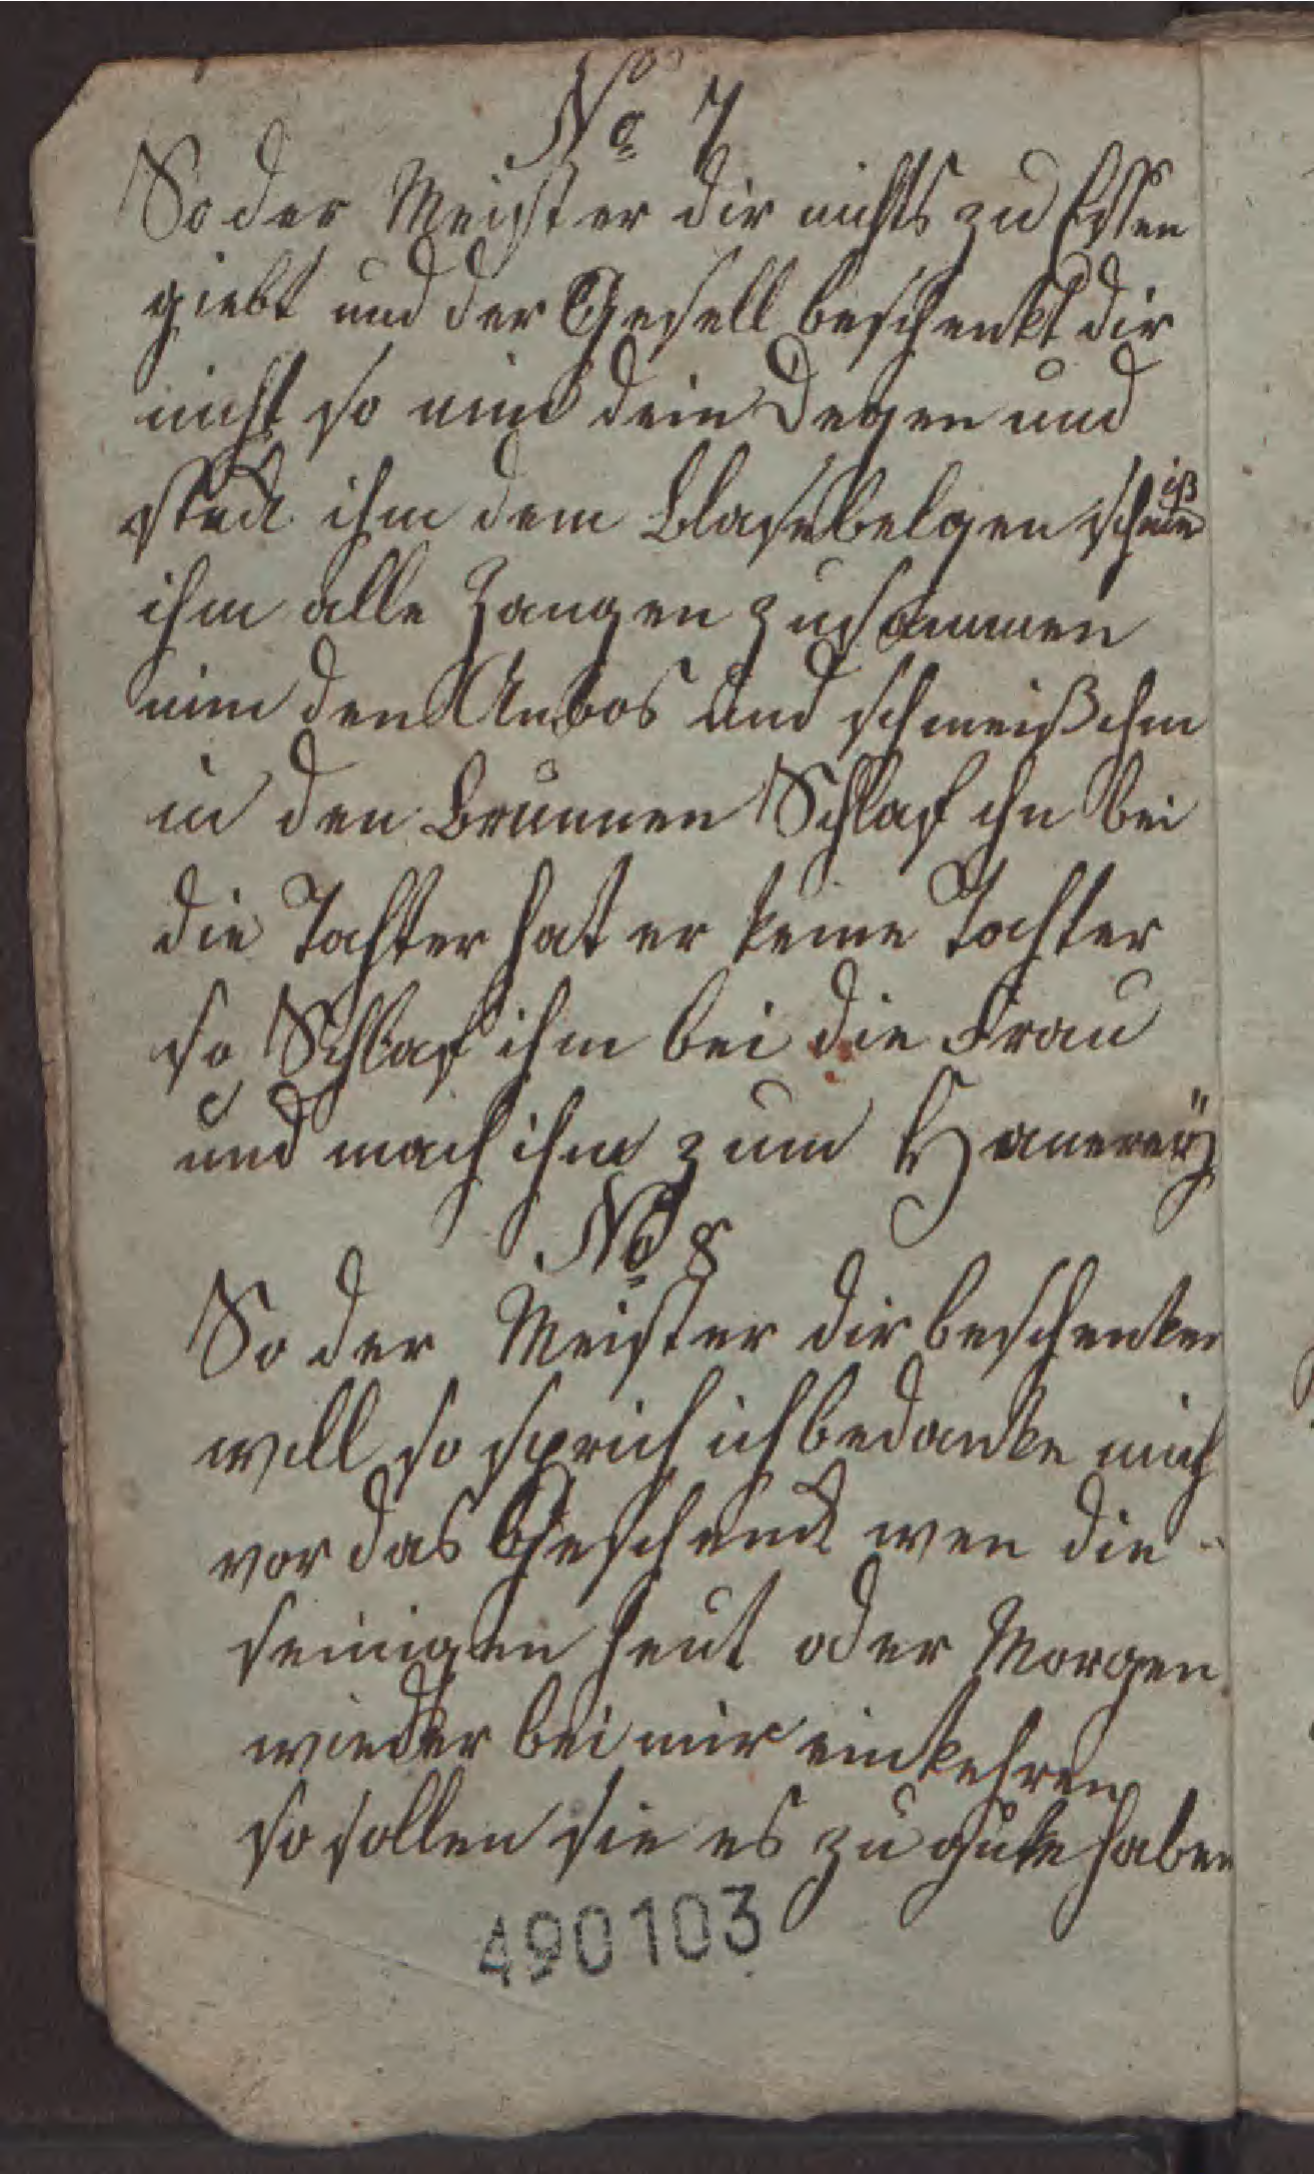 No 7
So der Meister dir nichts zu Essen
giebt und der Gesell beschenkt dir
nicht so nim dein Degen und
steck ihm dem Blasebelgen schmeiß
ihm alle Zangen zusammen
nim den Ambos und schmeiß ihm
in den Brunnen Schlaf ihn bei
die Tochter hat er keine Tochter
so Schlaf ihm bei die Frau
und mach ihm zum
No 8
So der Meister dir beschenken
will so sprich ich bedanke mich
vor das Geschenck wen die
seinigen heut oder Morgen
wieder bei mir einkehren
so sollen sie es zu gute haben
490103